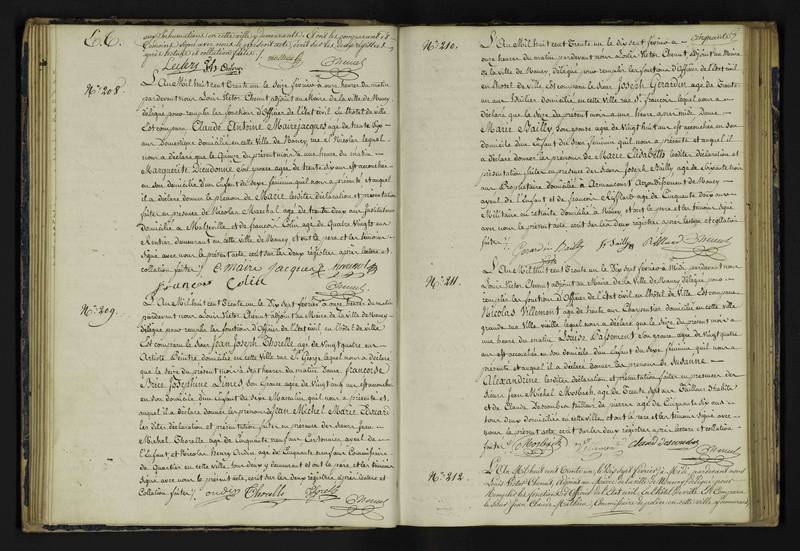 E.C.
aux Inhumations en cette ville y demeurants. Et ont les comparant et
témoins signé avec nous le présent acte, écrit sur les deux registres
après lecture et collation faites ./.
Leclerc
Chenut
N.° 208.
L'An Mil huit cent Trente un le Seize février à onze heures du matin
pardevant nous Louis Victor Chenut adjoint au Maire de la Ville de Nancy
délégué pour remplir les fonctions d'Officier de l'état Civil En l'hotel de ville
Est comparu Claude Antoine Mairejacques agé de trente Six
ans Domestique domicilié en cette Ville de Nancy rue S.t Nicolas lequel
nous a déclaré que le Quinze du présent mois à une heure du matin
Marguerite Dieudonné son épouse agée de Vingt six ans est accouchée
en son domicile d'un Enfant du Sexe féminin qu'il nous a présenté et auquel
il a déclaré donner le prénom de Marie lesdites déclaration et présentation
faites en presence de Nicolas Marechal agé de trente deux ans Instituteur
domicilié à Malzéville et de françois Colin agé de Quatre Vingts ans
Rentier demeurant en cette ville de Nancy et ont le pere et les témoins
Signé avec nous le présent acte, écrit sur les deux registres après lecture et
collation faites ./. C. Maire Jacques
françois Colin
Chenut
N.° 209.
L'An Mil huit cent Trente un le Dix Sept février à onze heures du matin
pardevant nous Louis Victor Chenut adjoint au Maire de la ville de Nancy
délégué pour remplir les fonctions d'Officier de l'état Civil en l'hôtel de ville
est comparu le Sieur Jean Joseph Thorelle agé de Vingt quatre ans
Artiste Peintre domicilié en cette Ville rue S.t George lequel nous a déclaré
que le Seize du présent mois à sept heures du matin Dame francoise
Brice Josephine Limet son Epouse agée de Vingt cinq ans est accouchée
en son domicile d'un Enfant du sexe Masculin, qu'il nous a présenté et
auquel il a déclaré donner les prénoms Jean Michel Marie Cesaire
les dites déclaration et présentation faites en présence des Sieurs Jean
Michel Thorelle agé de Cinquante neuf ans Cartonnier ayeul de
l'Enfant et Nicolas Henry Oudin agé de Cinquante neuf ans Commissaire
de Quartier en cette ville, tous deux y demeurant et ont le pere et les témoins
Signé avec nous le présent acte, écrit sur les deux registres après lecture et
Collation faites ./. oudin Thorelle Thorelle
Chenut
cinquante
N.° 210.
L'An Mil huit cent Trente un le Dix Sept février à
onze heures du matin, pardevant nous Louis Victor Chenut, Adjoint au Maire
de la Ville de Nancy, délégué pour remplir les fonctions d'Officier de l'état civil
en l'hotel de ville, est comparu le Sieur Joseph Gerardin agé de Trente
un ans Huilier domicilié en cette Ville rue S.t François, lequel nous a
déclaré que le Seize du présent mois à une heure après midi Dame
Marie Bailly Son épouse agée de Vingt huit ans est accouchée en son
domicile d'un Enfant du Sexe féminin qu'il nous a présenté et auquel il
a déclaré donner les prénoms de Marie Elisabeth lesdites déclaration et
présentation faites en presence des Sieurs Joseph Bailly agé de Cinquante
ans Propriétaire domicilié à Armaucourt Arrondissement de Nancy
ayeul de l'Enfant et de francois Rifflard agé de Cinquante Deux ans
Militaire en retraite domicilié à Nancy et ont le pere et les témoins Signé
avec nous le présent acte, écrit sur les deux registres après lecture et collation
faites ./. Gerardin Bailly Chenut
N.° 211.
L'An Mil huit cent Trente un le Dix Sept février à Midi, pardevant nous
Louis Victor Chenut, adjoint au Maire de la Ville de Nancy délégué pour
remplir les fonctions d'Officier de l'état Civil en l'hôtel de Ville, Est comparu
Nicolas Villemont agé de trente ans Charpentier domicilié en cette ville
grande rue Ville vieille lequel nous a déclaré que le Seize du présent mois à
une heure du matin Louise Paisement Son épouse agée de Vingt quatre
ans est accouchée en son domicile d'un Enfant du Sexe féminin, qu'il nous a
présenté et auquel il a déclaré donner les prénoms de Susanne
Alexandrine lesdites déclaration et présentation faites en presence des
Sieurs Jean Michel Mosbach, agé de Trente Sept ans Tailleur d'habits
et de Claude tailleur de pierres agé de Cinquante Six ans
tous deux domiciliés en cette ville, et ont le pere et les témoins Signé avec
nous le présent acte, écrit sur les deux registres après lecture et collation
faites ./. Mosbach Villemont Chenut
N.° 212
L'An Mil huit cent Trente un, le Dix Sept février, à Midi, pardevant nous
Louis Victor Chenut, Adjoint au Maire de la Ville de Nancy délégué pour
remplir les fonctions d'Officier de l'Etat civil, En l'hôtel de ville. Est Comparu
le Sieur Jean Claude Mathieu, Commissaire de police en cette ville y demeurant